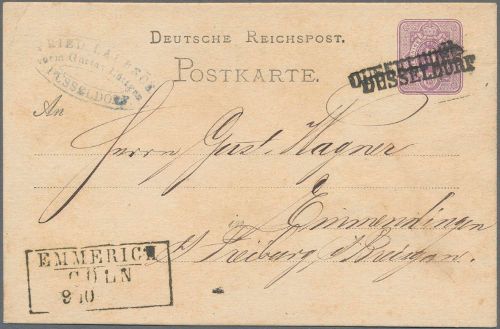 DEUTSCHE REICHSPOST.
POSTKARTE.
vorm Gustav
DÜSSELDORF
DÜSSELDORF
DÜSSELDORF
An
Herrn Gust. Wagner
in Emmendingen
Freiburg i/Breisgau.
EMMERICH
CÖLN
9 10